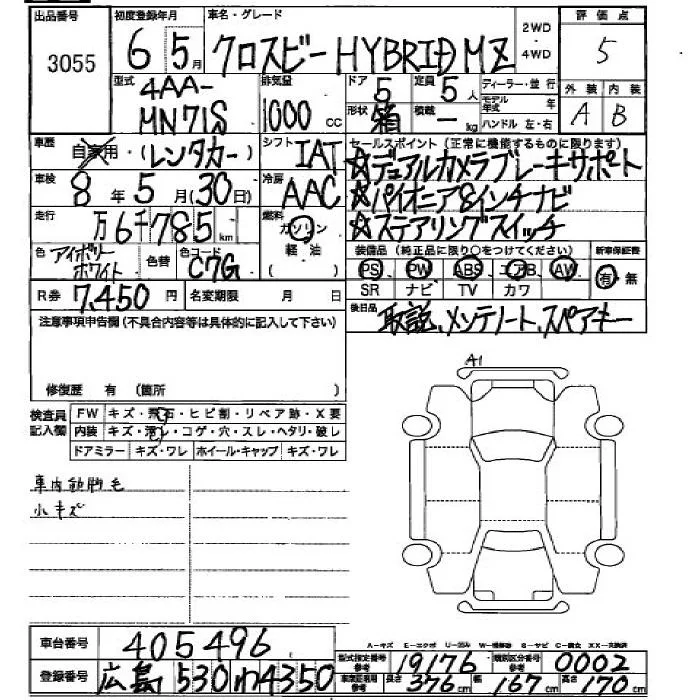 出品番号 初度登録年月 車名・グレード 評価点
3055 6 5月 クロスビー HYBRID MZ 2WD ・ 4WD 5
型式 4AA-MN71S 排気量 1000 cc ドア 5 定員 5人 ディーラー・並行 外装 内装
形状 箱 積載 ー kg モデル年式 年 A B
ハンドル 左・右
車歴 自家用・(レンタカー) シフト IAT セールスポイント(正常に機能するものに限ります)
☆デュアルカメラブレーキサポート
車検 8年5月(30日) 冷房 AAC ☆パイオニア8インチナビ
走行 万6千785km 燃料 ガソリン ・ 軽油 ( ) ☆ステアリングスイッチ
色 アイボリーホワイト 色替 色コード C7G 装備品(純正品に限り○をつけてください) 新車保証書
PS PW ABS エアB AW 有・無
R券 7,450円 名変期限 月 日 SR ナビ TV カワ
注意事項申告欄(不具合内容等は具体的に記入して下さい) 後日品 取説、メンテノート、スペアキー
修復歴 有 (箇所 )
A1
検査員記入欄 FW キズ・飛石・ヒビ割・リペア跡・X要
内装 キズ・汚レ・コゲ・穴・スレ・ヘタリ・破レ
ドアミラー キズ・ワレ ホイール・キャップ キズ・ワレ
車内動物毛
小キズ
車台番号 405496
A-キズ E-エクボ U-凹み W-補修跡 S-サビ C-腐食 XX-交換済
型式指定番号 参考 19176 類別区分番号 参考 0002
登録番号 広島 530 わ 4350 車検証記載 参考 長さ 376cm 幅 167cm 高さ 170cm